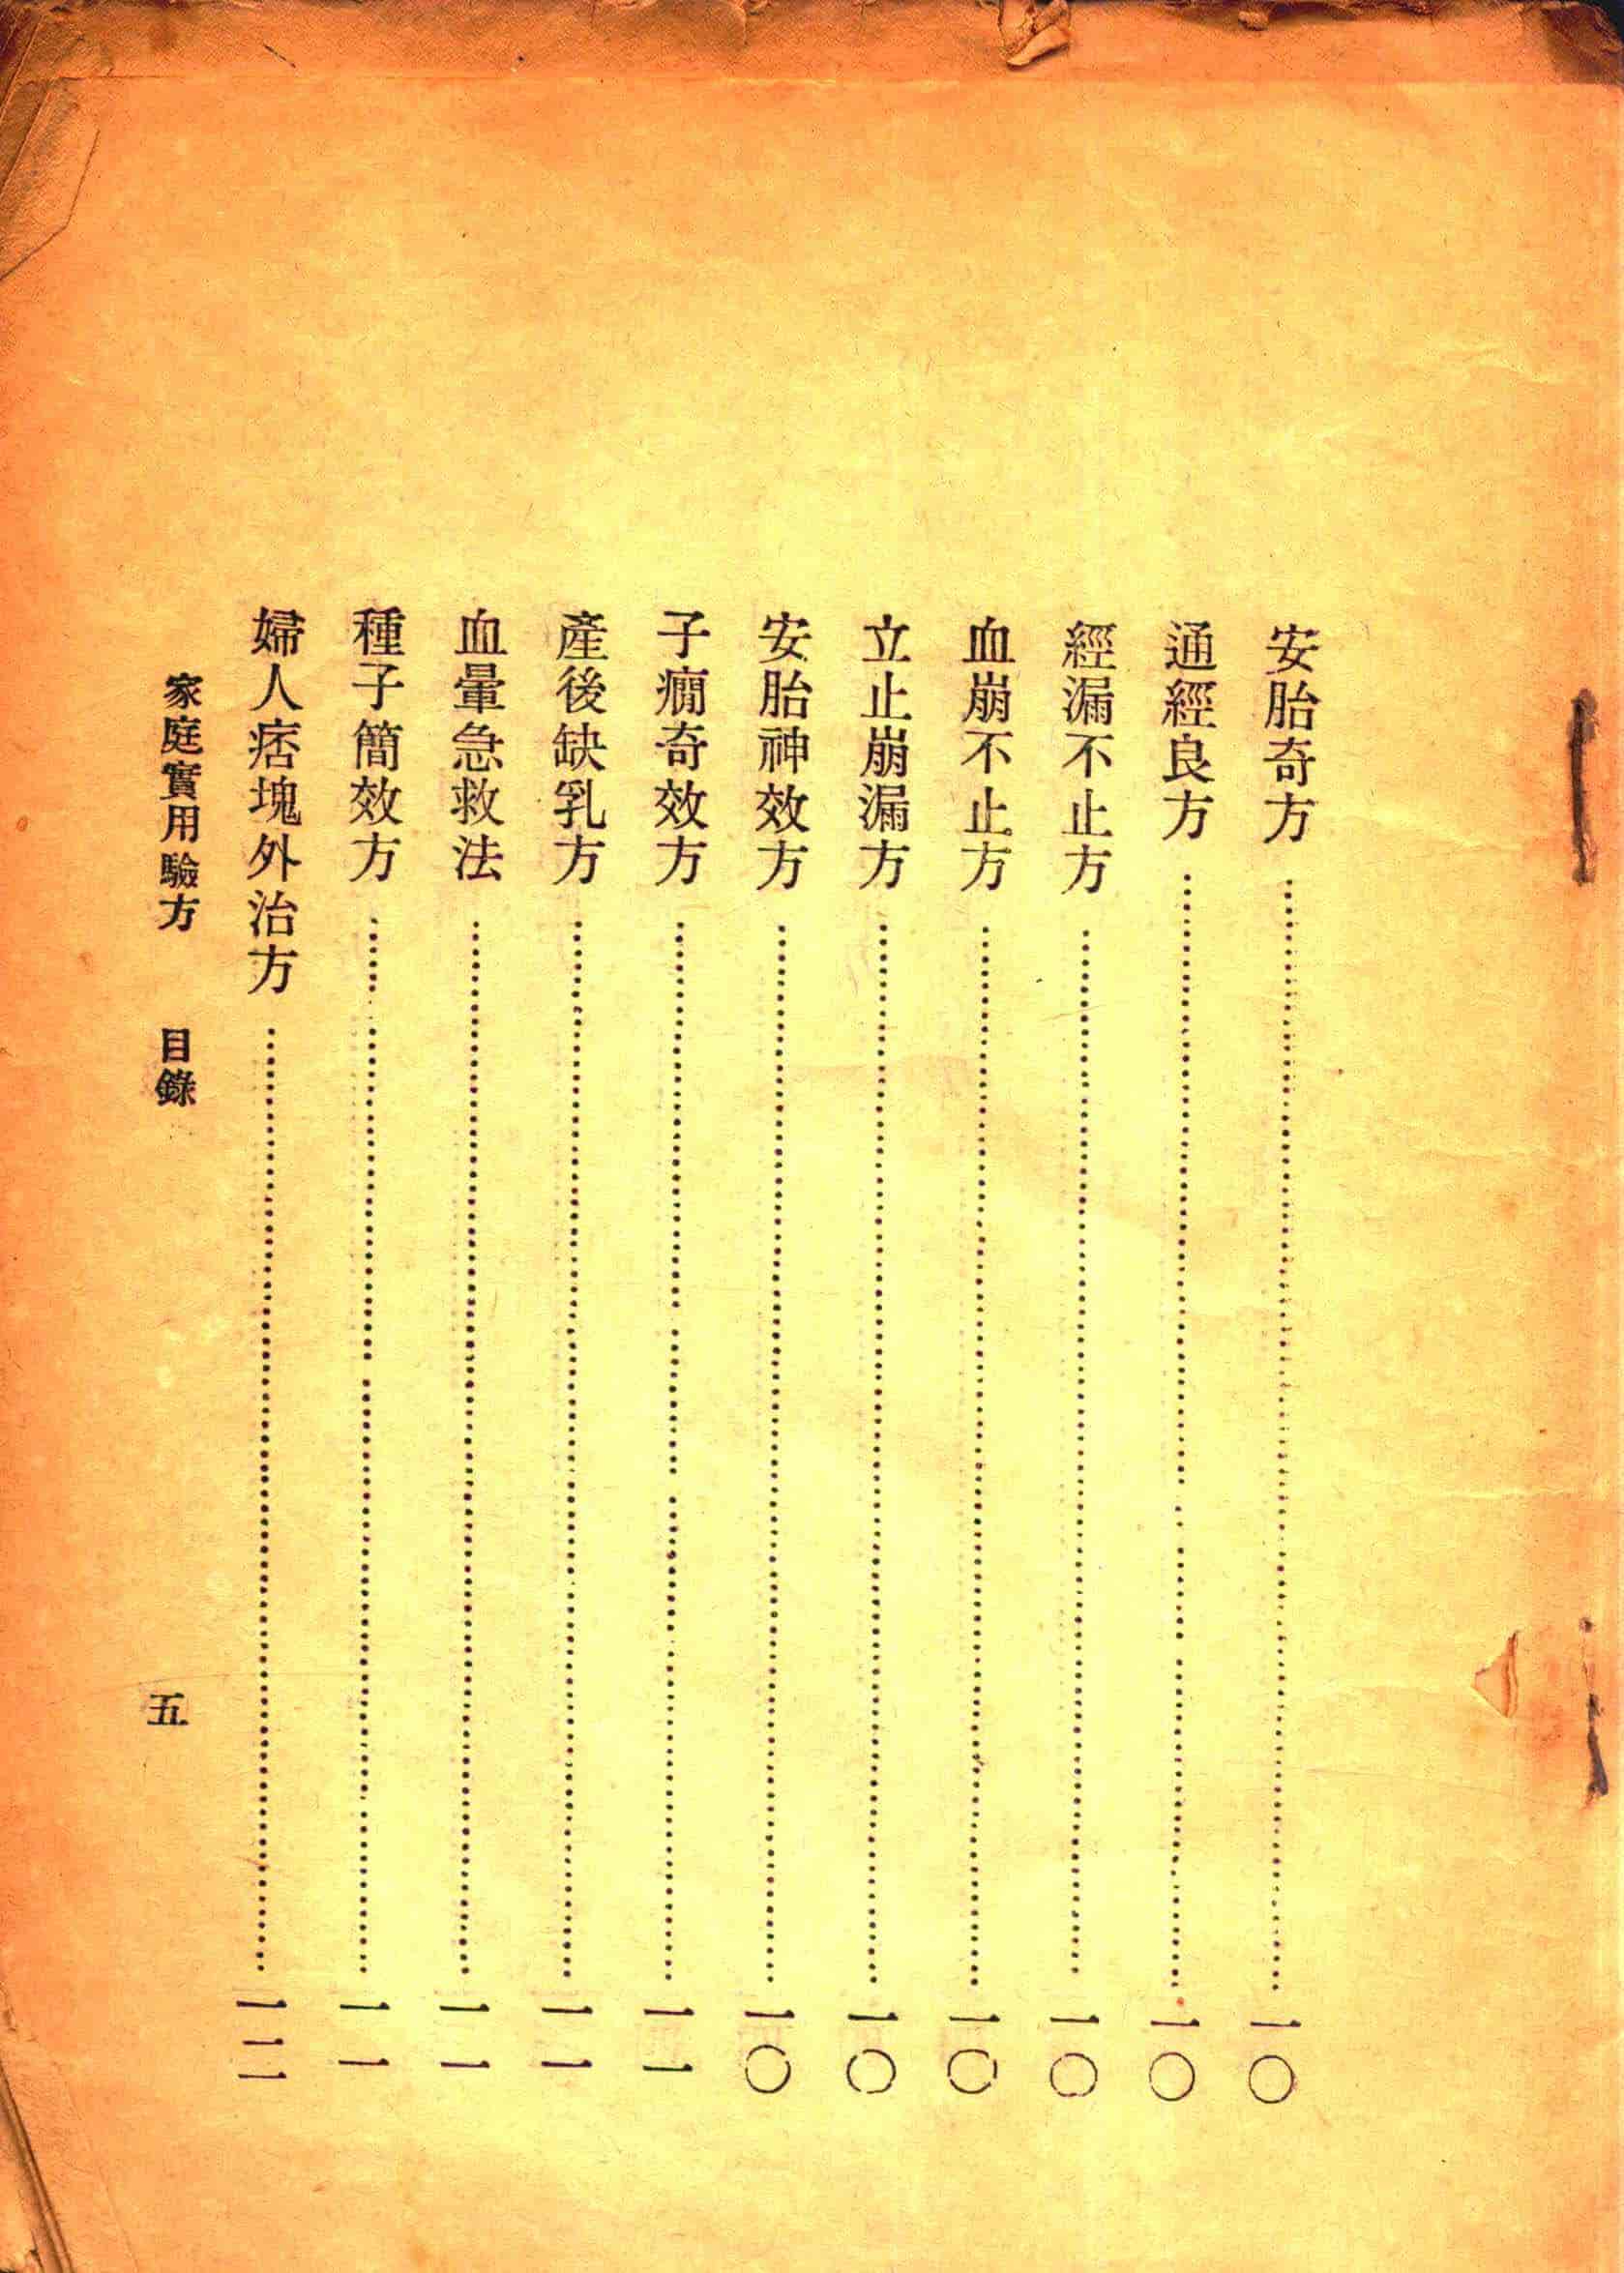 安胎奇方……一〇
通經良方……一〇
經漏不止方……一〇
血崩不止方……一〇
立止崩漏方……一〇
安胎神效方……一〇
子癇奇效方……一一
產後缺乳方……一一
血暈急救法……一一
種子簡效方……一一
婦人痞塊外治方……一二
家庭實用驗方　目錄　五